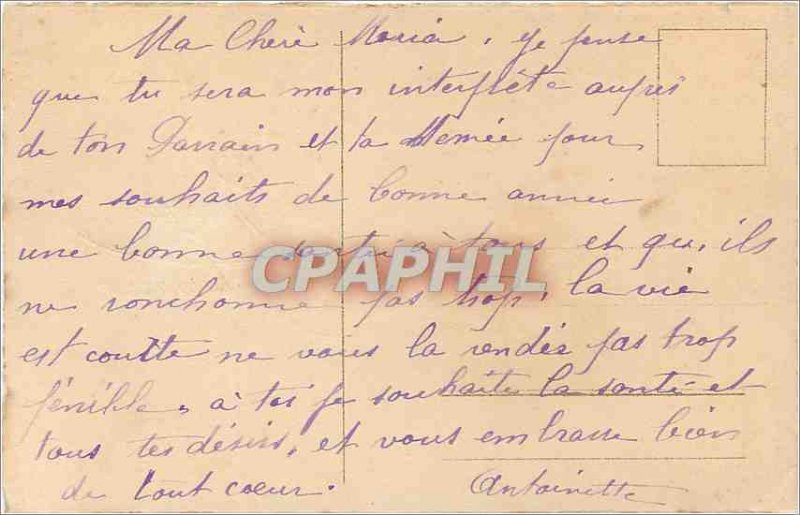 Ma Cherè Maria, je pense
que tu sera mon interprête auprès
de ton Parrain et ta Mémée pour
mes souhaits de bonne année
une bonne santé à tous et qu'ils
ne ronchonne pas trop, la vie
est coutte ne vous la rendés pas trop
pénible, à toi je souhaite la santé et
tous tes désirs, et vous embrasse bien
de tout coeur.
Antoinette
CPAPHIL